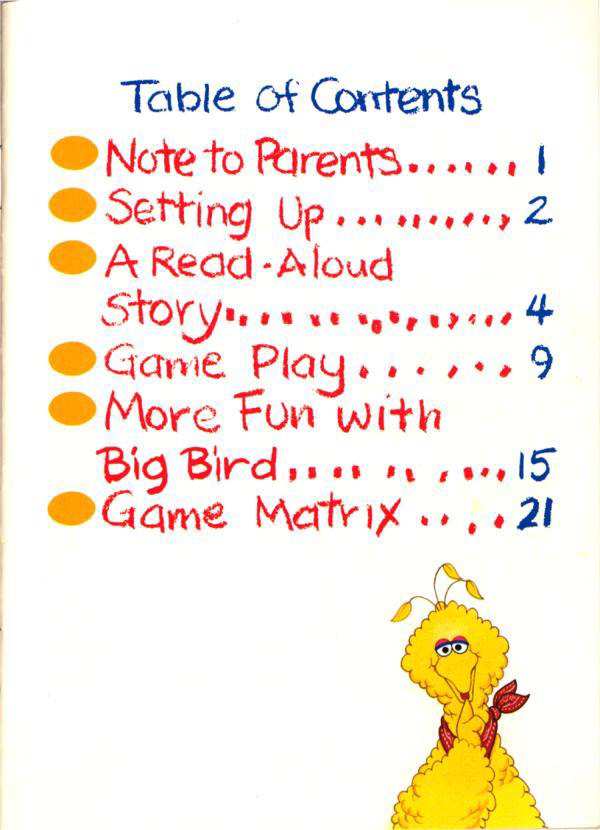 Table of Contents
Note to Parents...... 1
Setting Up.......... 2
A Read-Aloud
Story................ 4
Game Play...... 9
More Fun with
Big Bird.......... 15
Game Matrix .... 21